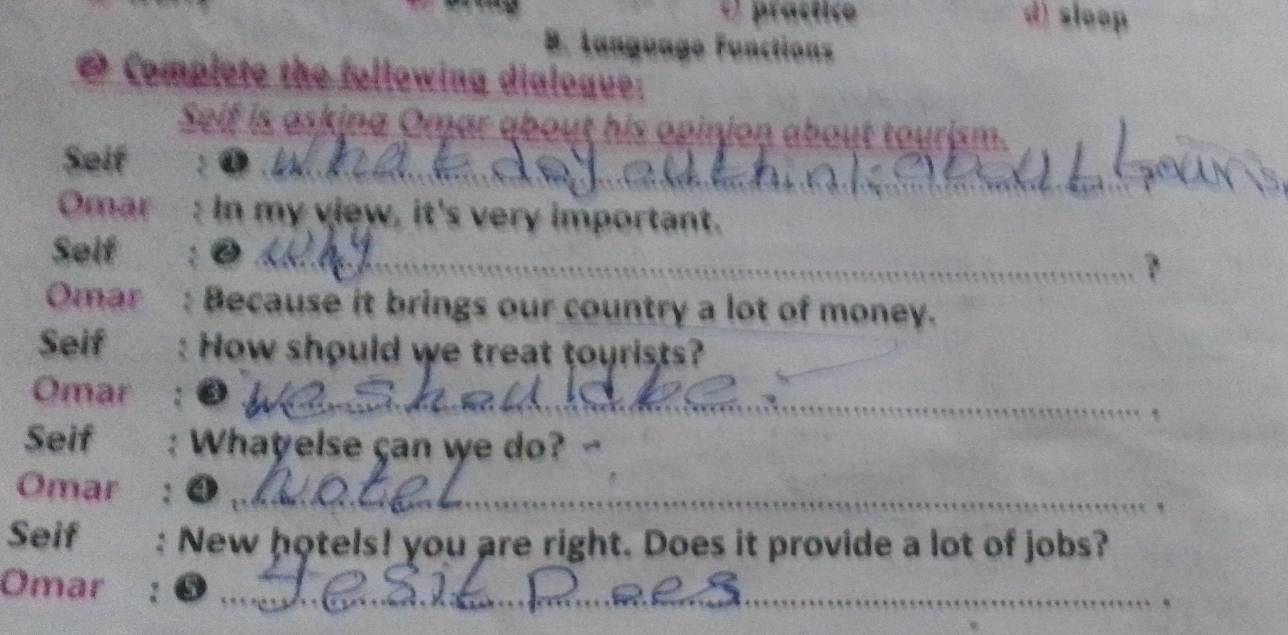 c) practice d) sleep
B. Language Functions
2 Complete the following dialogue:
Seif is asking Omar about his opinion about tourism.
Seif : 1 what do you think about touris
Omar : In my view, it's very important.
Seif : 2 why ?
Omar : Because it brings our country a lot of money.
Seif : How should we treat tourists?
Omar : 3 we should be .
Seif : What else can we do?
Omar : 4 hotel .
Seif : New hotels! you are right. Does it provide a lot of jobs?
Omar : 5 Yes it Does .